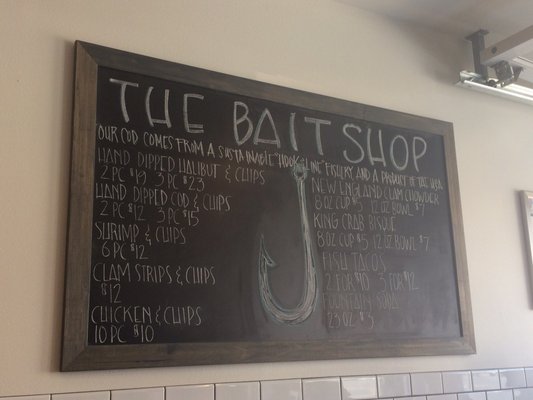 THE BAIT SHOP
OUR COD COMES FROM A SUSTAINABLE "HOOK & LINE" FISHERY AND A PRODUCT OF THE USA
HAND DIPPED HALIBUT & CHIPS
2 PC $19 3 PC $23
HAND DIPPED COD & CHIPS
2 PC $12 3 PC $15
SHRIMP & CHIPS
6 PC $12
CLAM STRIPS & CHIPS
$12
CHICKEN & CHIPS
10 PC $10
NEW ENGLAND CLAM CHOWDER
8 OZ CUP $5 12 OZ BOWL $7
KING CRAB BISQUE
8 OZ CUP $5 12 OZ BOWL $7
FISH TACOS
2 FOR $10 3 FOR $12
FOUNTAIN SODA
23 OZ $3